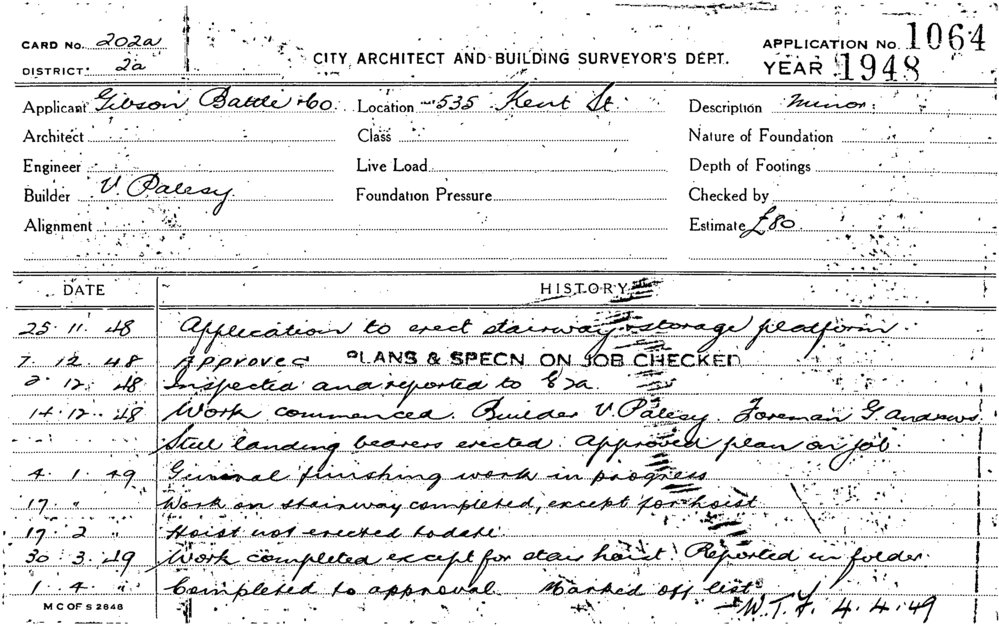 CARD No. 202a
DISTRICT. 2a
CITY ARCHITECT AND BUILDING SURVEYOR'S DEPT.
APPLICATION No. 1064
YEAR 1948
Applicant Gibson Battle & Co. Location 535 Kent St. Description Minor
Architect Class Nature of Foundation
Engineer Live Load Depth of Footings
Builder V. Palesy Foundation Pressure Checked by
Alignment Estimate £80
DATE HISTORY
25. 11. 48 Application to erect stairway & storage platform.
7. 12. 48 Approved PLANS & SPECN. ON JOB CHECKED
2. 12. 48 Inspected and reported to E2a.
14. 12. 48 Work commenced. Builder V. Palesy. Foreman G. Andrews
Steel landing bearers erected. Approved plan on job.
4. 1. 49 General finishing work in progress
17. " Work on stairway completed, except for hoist
17. 2 " Hoist not erected to date.
30. 3. 49 Work completed except for stair hoist. Reported in folder.
1. 4. " Completed to approval. Marked off list
W.T.F. 4.4.49
M C OF S 2848